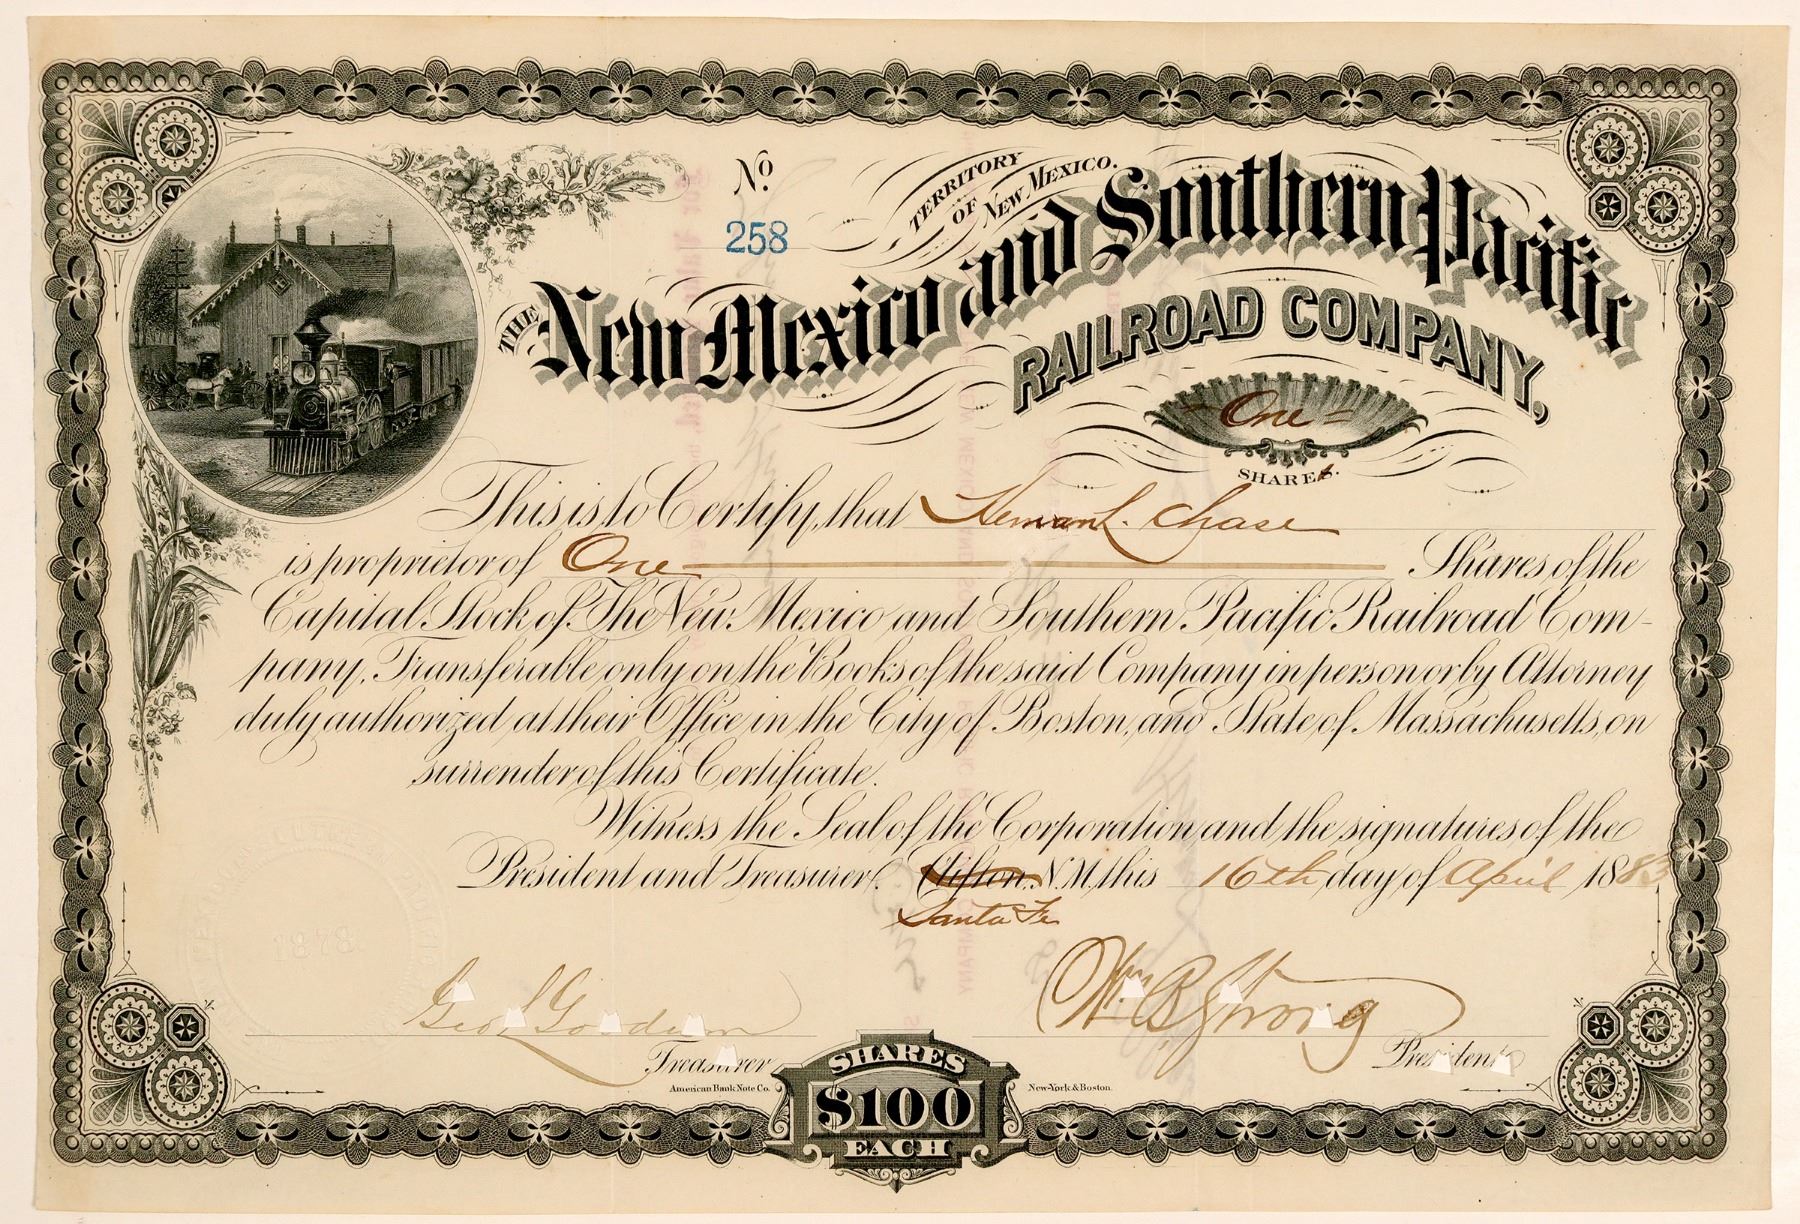 No.
258
TERRITORY
OF NEW MEXICO.
THE New Mexico and Southern Pacific
RAILROAD COMPANY,
- One =
SHARES.
This is to Certify, that Heman L. Chase
is proprietor of One Shares of the
Capital Stock of The New Mexico and Southern Pacific Railroad Com-
pany, Transferable only on the Books of the said Company in person or by Attorney
duly authorized at their Office in the City of Boston, and State of Massachusetts, on
surrender of this Certificate.
Witness the Seal of the Corporation and the signatures of the
President and Treasurer. Clifton, N.M, this 16th day of April 1883
Santa Fe
1878
Geo L Goodwin
Wm B Strong
Treasurer
President
American Bank Note Co.
New-York & Boston.
SHARES
$100
EACH